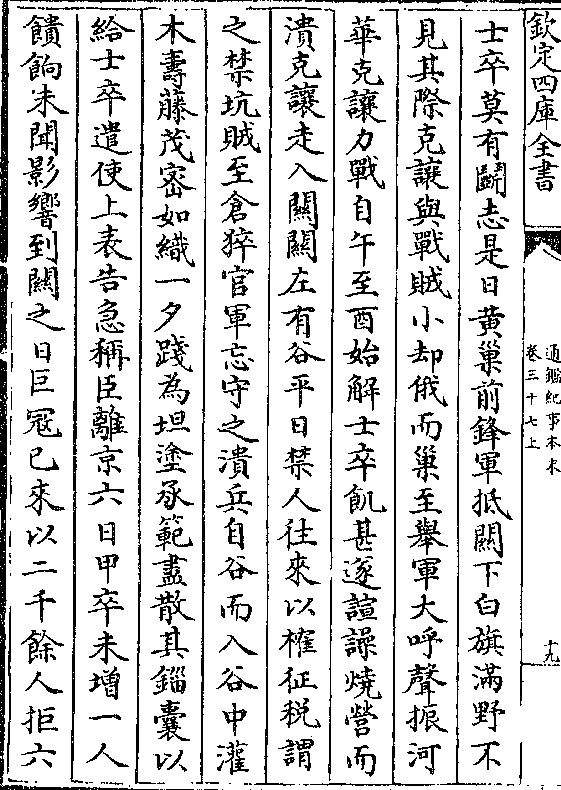 欽定四庫全書
通鑑紀事本末
卷三十七上
十九
士卒莫有鬭志是日黄巢前鋒軍抵關下白旗滿野不
見其際克讓與戰賊小却俄而巢至舉軍大呼聲振河
華克讓力戰自午至酉始解士卒飢甚遂諠譟燒營而
潰克讓走入關關左有谷平日禁人往來以榷征税謂
之禁坑賊至倉猝官軍忘守之潰兵自谷而入谷中灌
木夀藤茂宻如織一夕踐為坦塗承範盡散其輜囊以
給士卒遣使上表告急稱臣離京六日甲卒未增一人
饋餉未聞影響到關之日巨冦已來以二千餘人拒六